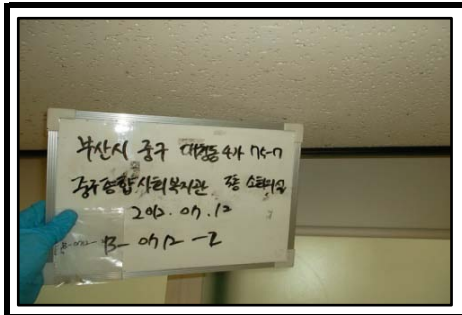 부산시 중구 대청동 4가 75-7
중구종합사회복지관 3층
2012. 07. 12
B-0712-2